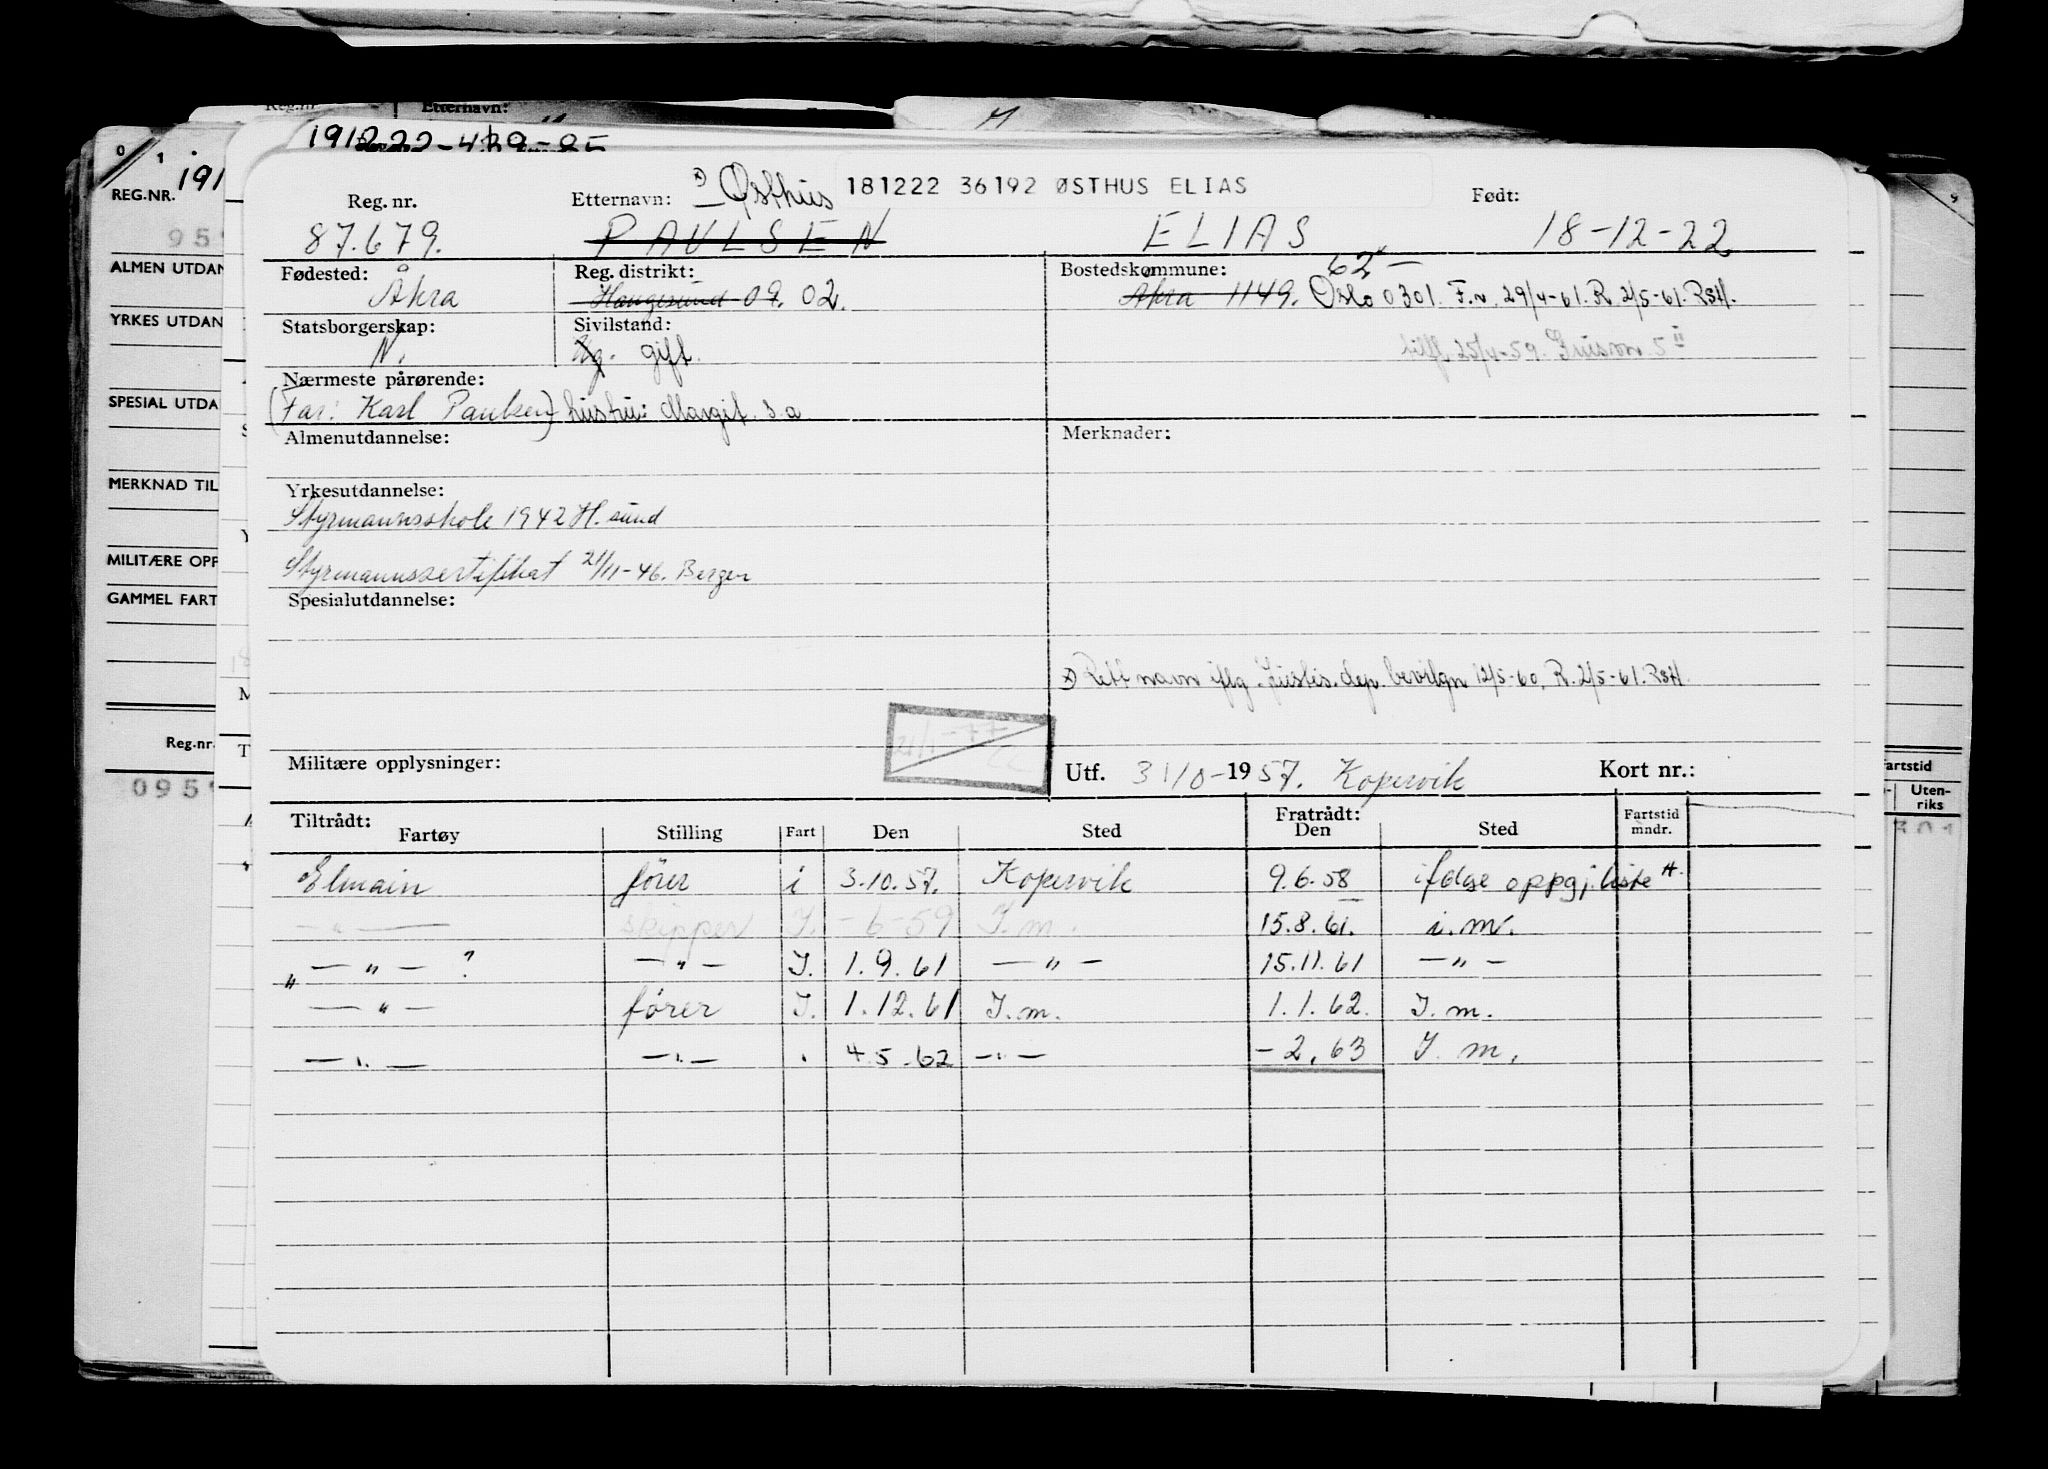 Reg.nr. Etternavn:
191222-429-85
0 1
REG.NR. 191
959
ALMEN UTDAN
YRKES UTDAN
SPESIAL UTDA
MERKNAD TIL
MILITÆRE OPP
GAMMEL FART
Reg.nr.
095
artstid
Uten-
riks
Reg. nr. Etternavn: x) Østhus 181222 36192 ØSTHUS ELIAS Født:
87.679. PAULSEN ELIAS 18-12-22
Fødested: Reg. distrikt: Bostedskommune: 62
Åkra Haugesund 09. 02. Åkra 1149. Oslo 0301. F.v. 29/4-61. R. 2/5-61. RSH.
Statsborgerskap: Sivilstand:
N. Ug. gift. 25/4-59. 5 II
Nærmeste pårørende:
(Far: Karl Paulsen) hustru: Margit s.a
Almenutdannelse: Merknader:
Yrkesutdannelse:
Styrmannsskole 1942 H.sund
Styrmannssertifikat 21/11-46. Bergen
Spesialutdannelse:
x) Rett navn iflg. Justis.dep. bevilgn 12/5-60, R. 2/5-61. RSH.
21/1-77
22
Militære opplysninger: Utf. 31/0-1957. Kopervik Kort nr.:
Tiltrådt: Fratrådt: Fartstid
Fartøy Stilling Fart Den Sted Den Sted mndr.
Elmain fører i 3.10.57. Kopervik 9.6.58 ifølge oppgj. liste H.
— " — skipper I. - 6-59 I.m. 15.8.61. i.m.
" — " — ? — " — I. 1.9.61 — " — 15.11.61 — " —
— " — fører I. 1.12.61 I.m. 1.1.62. I.m.
— " — — " — . 4.5.62 — " — - 2.63 I.m.